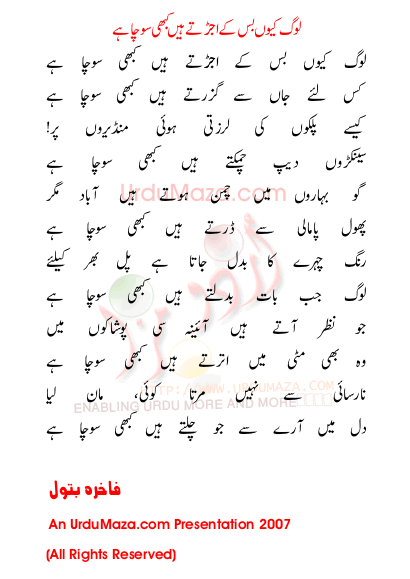 لوگ کیوں بس کے اجڑتے ہیں کبھی سوچا ہے
لوگ کیوں بس کے اجڑتے ہیں کبھی سوچا ہے
کس لئے جاں سے گزرتے ہیں کبھی سوچا ہے
کیسے پلکوں کی لرزتی ہوئی منڈیروں پر!
سینکڑوں دیپ چمکتے ہیں کبھی سوچا ہے
گو بہاروں میں چمن ہوتے ہیں آباد مگر
پھول پامالی سے ڈرتے ہیں کبھی سوچا ہے
رنگ چہرے کا بدل جاتا ہے پل بھر کیلئے
لوگ جب بات بدلتے ہیں کبھی سوچا ہے
جو نظر آتے ہیں آئینہ سی پوشاکوں میں
وہ بھی مٹی میں اترتے ہیں کبھی سوچا ہے
نارسائی سے نہیں مرتا کوئی، مان لیا
دل میں آرے سے جو چلتے ہیں کبھی سوچا ہے
UrduMaza.com
اردو مزا
HTTP://WWW.URDUMAZA.COM
ENABLING URDU MORE AND MORE
فاخرہ بتول
An UrduMaza.com Presentation 2007
(All Rights Reserved)